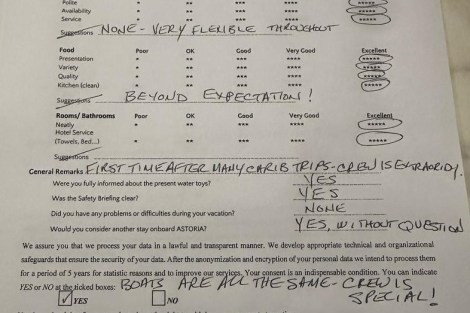 Polite * ** *** **** *****
Availability * ** *** **** *****
Service * ** *** **** *****
Suggestions NONE - VERY FLEXIBLE THROUGHOUT
Food Poor OK Good Very Good Excellent
Presentation * ** *** **** *****
Variety * ** *** **** *****
Quality * ** *** **** *****
Kitchen (clean) * ** *** **** *****
Suggestions BEYOND EXPECTATION!
Rooms/ Bathrooms Poor OK Good Very Good Excellent
Neatly * ** *** **** *****
Hotel Service
(Towels, Bed...) * ** *** **** *****
Suggestions
General Remarks FIRST TIME AFTER MANY CARIB TRIPS - CREW IS EXTRAORIDY.
Were you fully informed about the present water toys? YES
Was the Safety Briefing clear? YES
Did you have any problems or difficulties during your vacation? NONE
Would you consider another stay onboard ASTORIA? YES, WITHOUT QUESTION
We assure you that we process your data in a lawful and transparent manner. We develop appropriate technical and organizational
safeguards that ensure the security of your data. After the anonymization and encryption of your personal data we intend to process them
for a period of 5 years for statistic reasons and to improve our services. Your consent is an indispensable condition. You can indicate
YES or NO at the ticked boxes: BOATS ARE ALL THE SAME - CREW IS
YES NO SPECIAL!